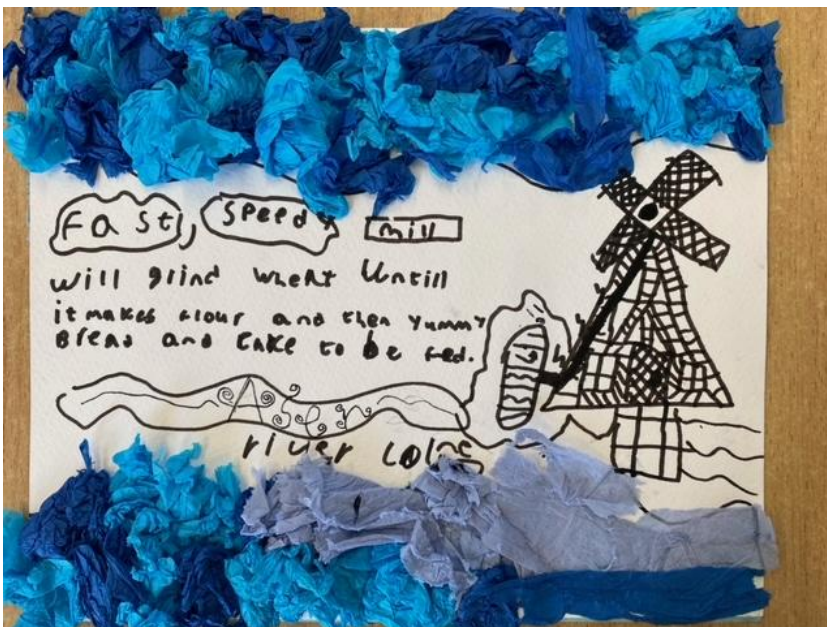 Fast, speedy mill
will grind wheat Untill
it makes flour and then yummy
Bread and cake to be fed.
Asen
river colne